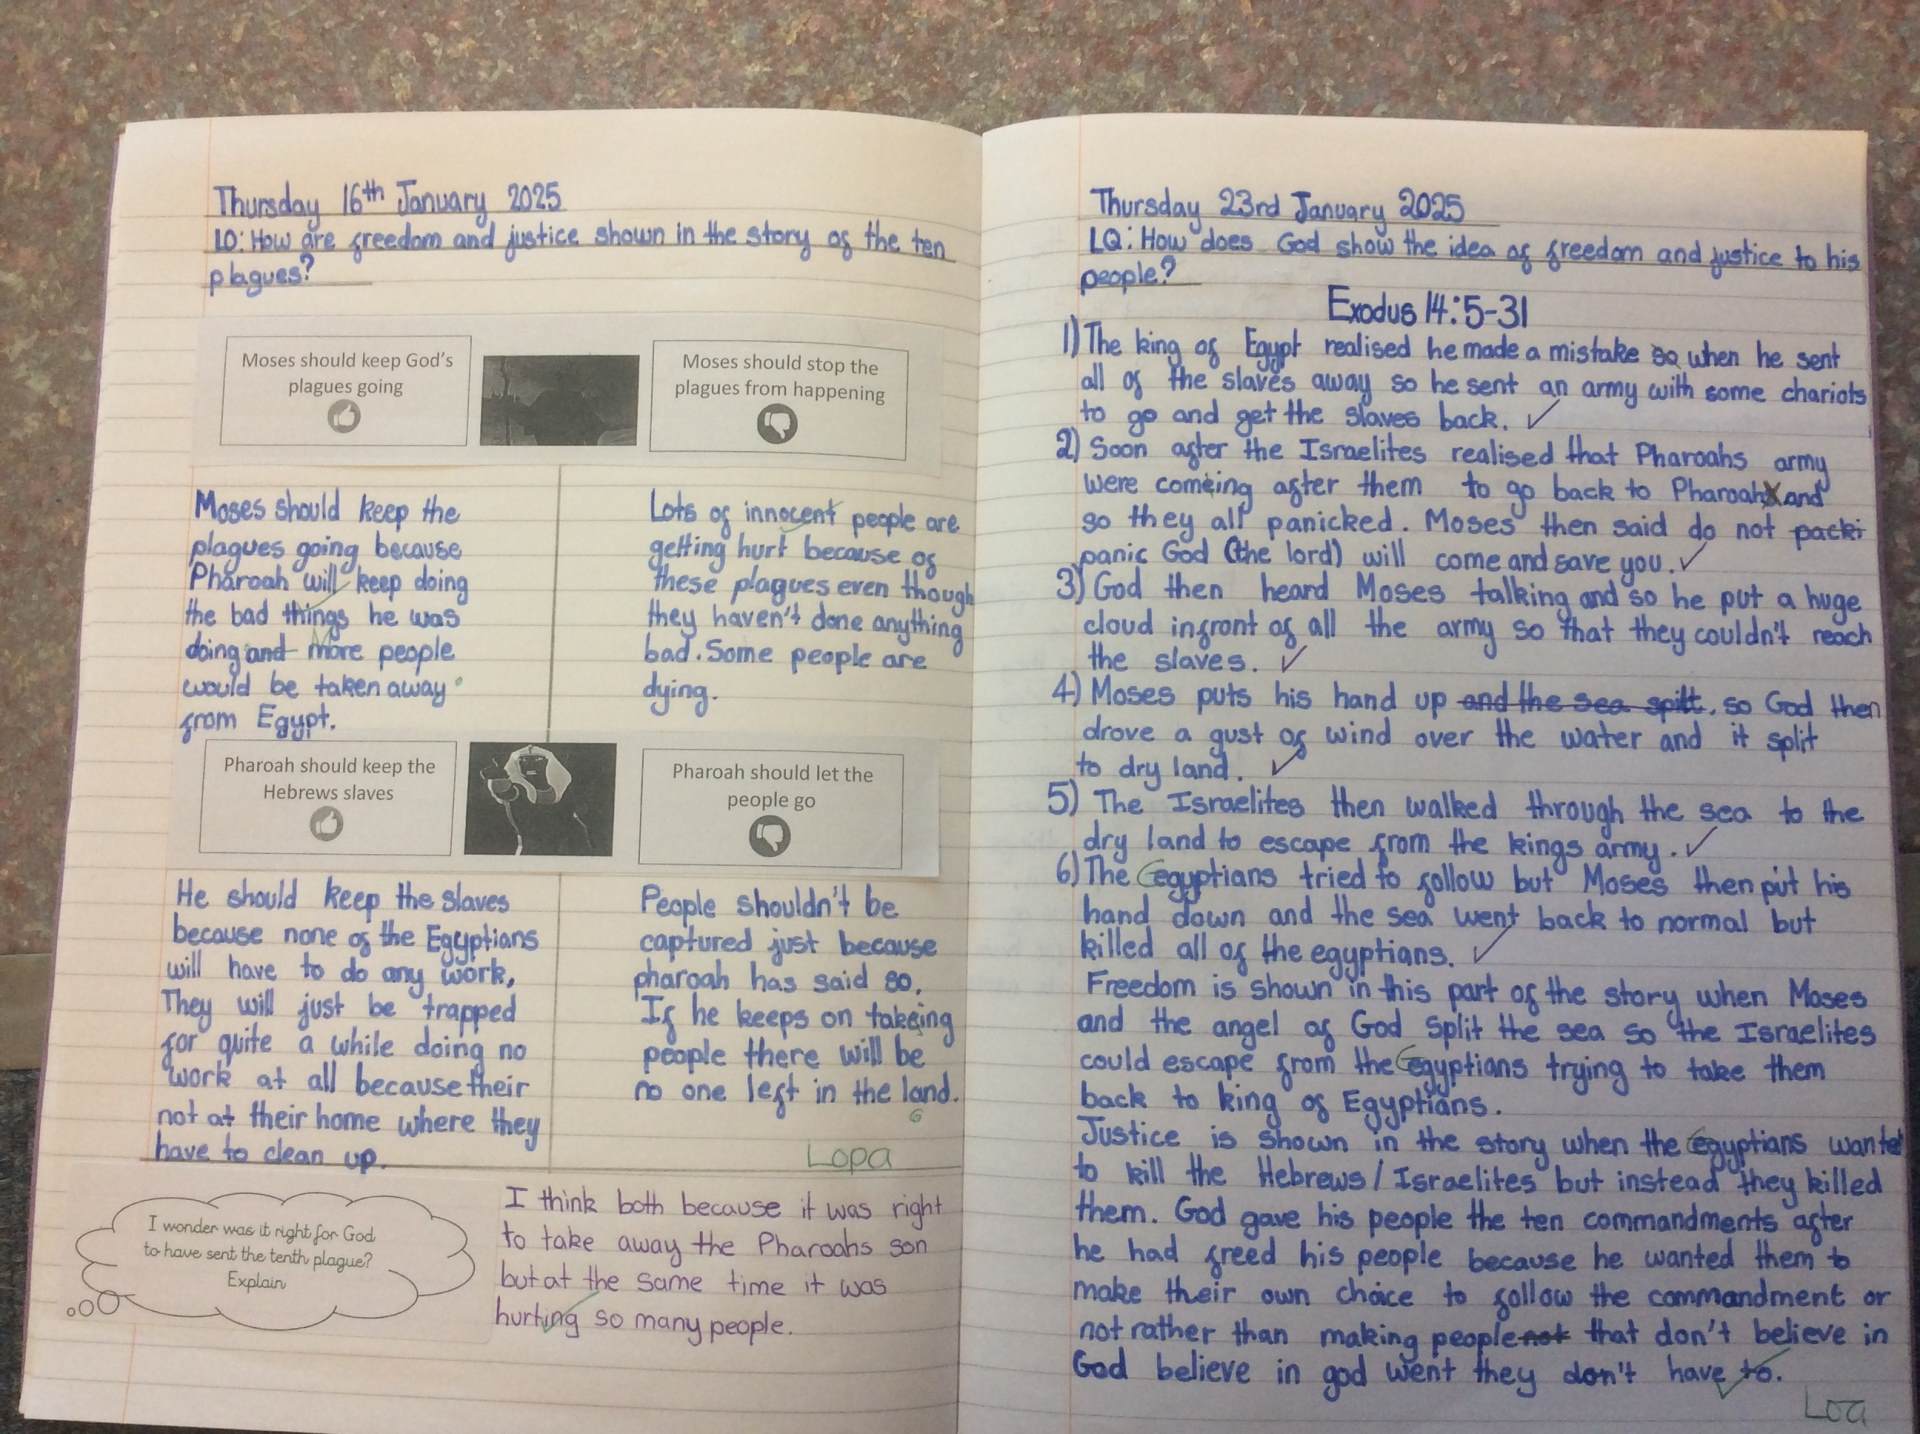 Thursday 16th January 2025
LO: How are freedom and justice shown in the story of the ten
plagues?
Moses should keep God's
plagues going
Moses should stop the
plagues from happening
Moses should keep the
plagues going because
Pharoah will keep doing
the bad things he was
doing and more people
would be taken away
from Egypt.
Lots of innocent people are
getting hurt because of
these plagues even though
they haven't done anything
bad. Some people are
dying.
Pharoah should keep the
Hebrews slaves
Pharoah should let the
people go
He should keep the slaves
because none of the Egyptians
will have to do any work,
They will just be trapped
for quite a while doing no
work at all because their
not at their home where they
have to clean up.
People shouldn't be
captured just because
pharoah has said so.
If he keeps on takeing
people there will be
no one left in the land.
Lopa
I wonder was it right for God
to have sent the tenth plague?
Explain
I think both because it was right
to take away the Pharoahs son
but at the same time it was
hurting so many people.
Thursday 23rd January 2025
LQ: How does God show the idea of freedom and justice to his
people?
Exodus 14:5-31
1) The king of Egypt realised he made a mistake so when he sent
all of the slaves away so he sent an army with some chariots
to go and get the slaves back.
2) Soon after the Israelites realised that Pharoahs army
were comeing after them to go back to Pharoah and
so they all panicked. Moses then said do not packi
panic God (the lord) will come and save you.
3) God then heard Moses talking and so he put a huge
cloud infront of all the army so that they couldn't reach
the slaves.
4) Moses puts his hand up and the sea spilt, so God then
drove a gust of wind over the water and it split
to dry land.
5) The Israelites then walked through the sea to the
dry land to escape from the kings army.
6) The egyptians tried to follow but Moses then put his
hand down and the sea went back to normal but
killed all of the egyptians.
Freedom is shown in this part of the story when Moses
and the angel of God split the sea so the Israelites
could escape from the egyptians trying to take them
back to king of Egyptians.
Justice is shown in the story when the egyptians wanted
to kill the Hebrews/Israelites but instead they killed
them. God gave his people the ten commandments after
he had freed his people because he wanted them to
make their own choice to follow the commandment or
not rather than making people not that don't believe in
God believe in god went they don't have to.